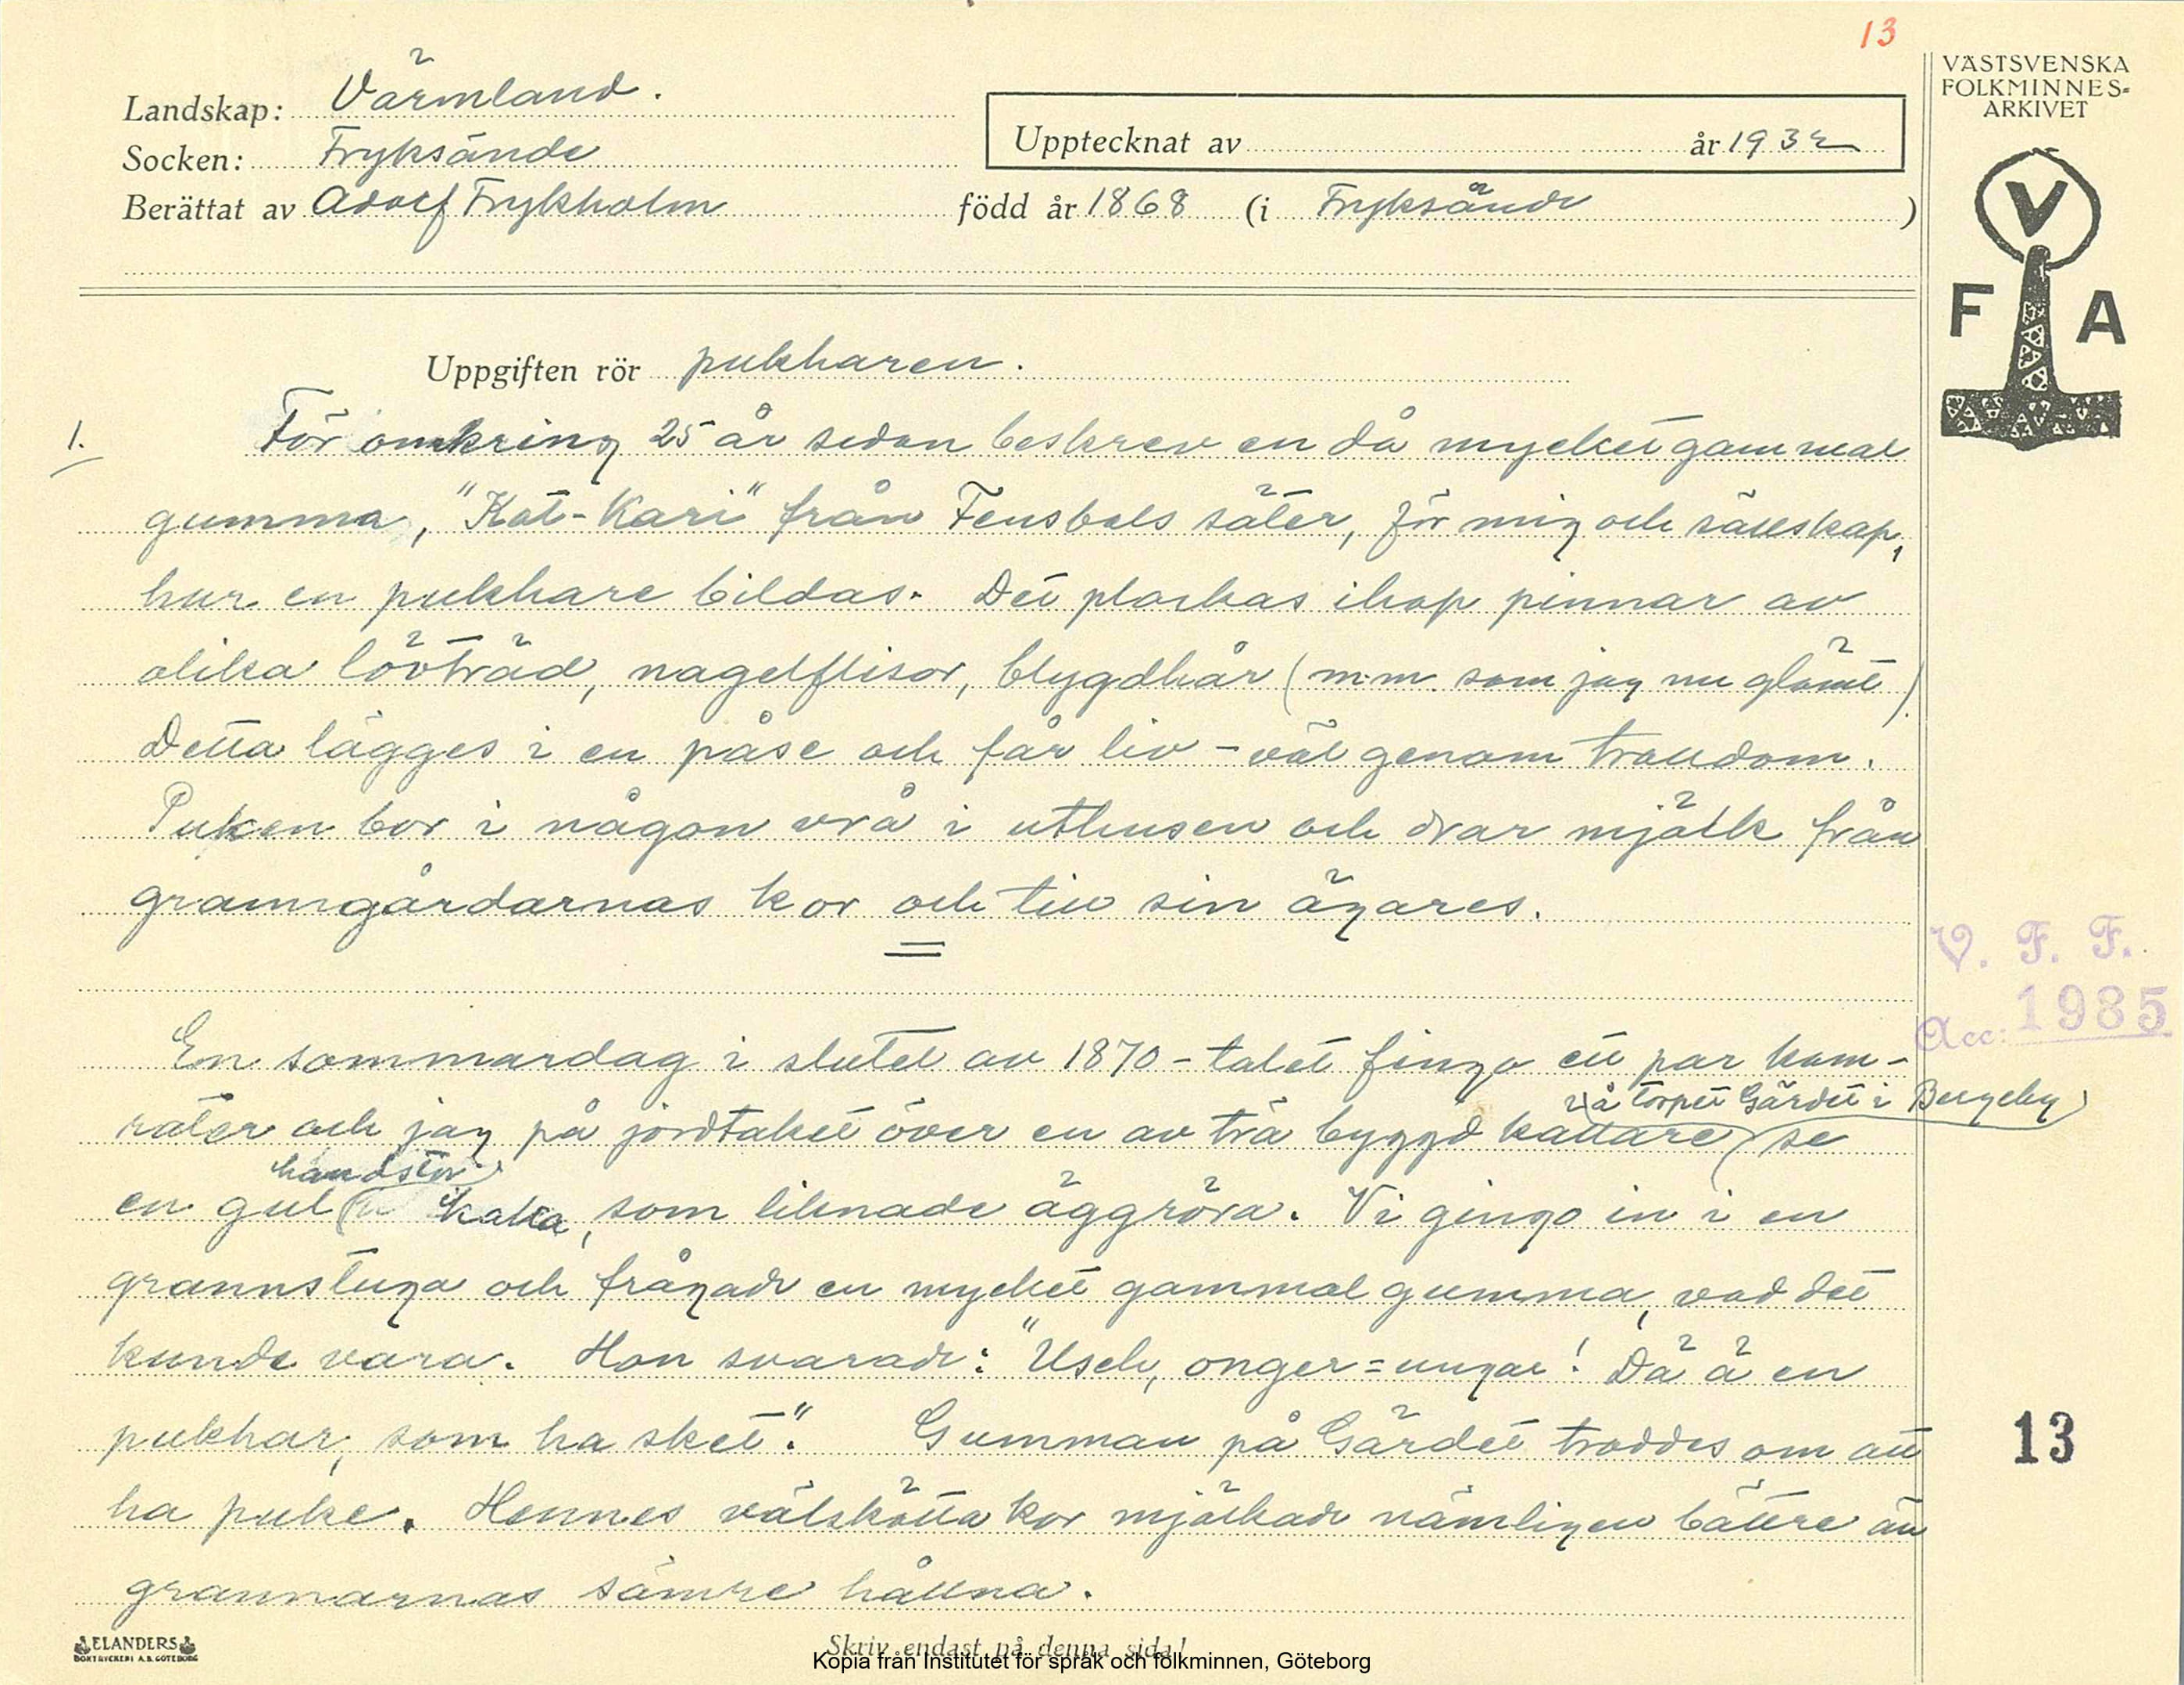 13
VÄSTSVENSKA
FOLKMINNES-
ARKIVET
Landskap: Värmland.
Socken: Fryksände
Upptecknat av år 1932
Berättat av Adolf Frykholm född år 1868 (i Fryksände)
V
F A
Uppgiften rör pukharen.
1. För omkring 25 år sedan beskrev en då mycket gammal
gumma, "Kat-Kari" från Fensbols säter, för mig och sällskap,
hur en pukhare bildas. Det plockas ihop pinnar av
olika lövträd, nagelflisor, blygdhår (m.m. som jag nu glömt).
Detta lägges i en påse och får liv - väl genom trolldom.
Puken bor i någon vrå i uthusen och drar mjölk från
granngårdarnas kor och till sin ägares.
V. F. F.
Acc: 1985
En sommardag i slutet av 1870-talet fingo ett par kam-
på torpet Gärdet i Bergeby
rater och jag på jordtaket över en av trä byggd källare se
handstor
en gul kaka, som liknade äggröra. Vi gingo in i en
grannstuga och frågade en mycket gammal gumma, vad det
kunde vara. Hon svarade: "Usch, onger = ungar! Dä ä en
pukhar, som ha sket". Gumman på Gärdet troddes om att
13
ha puke. Hennes välskötta kor mjölkade nämligen bättre än
grannarnas sämre hållna.
ELANDERS
BOKTRYCKERI A.B. GÖTEBORG
Skriv endast på denna sida!
Kopia från Institutet för språk och folkminnen, Göteborg